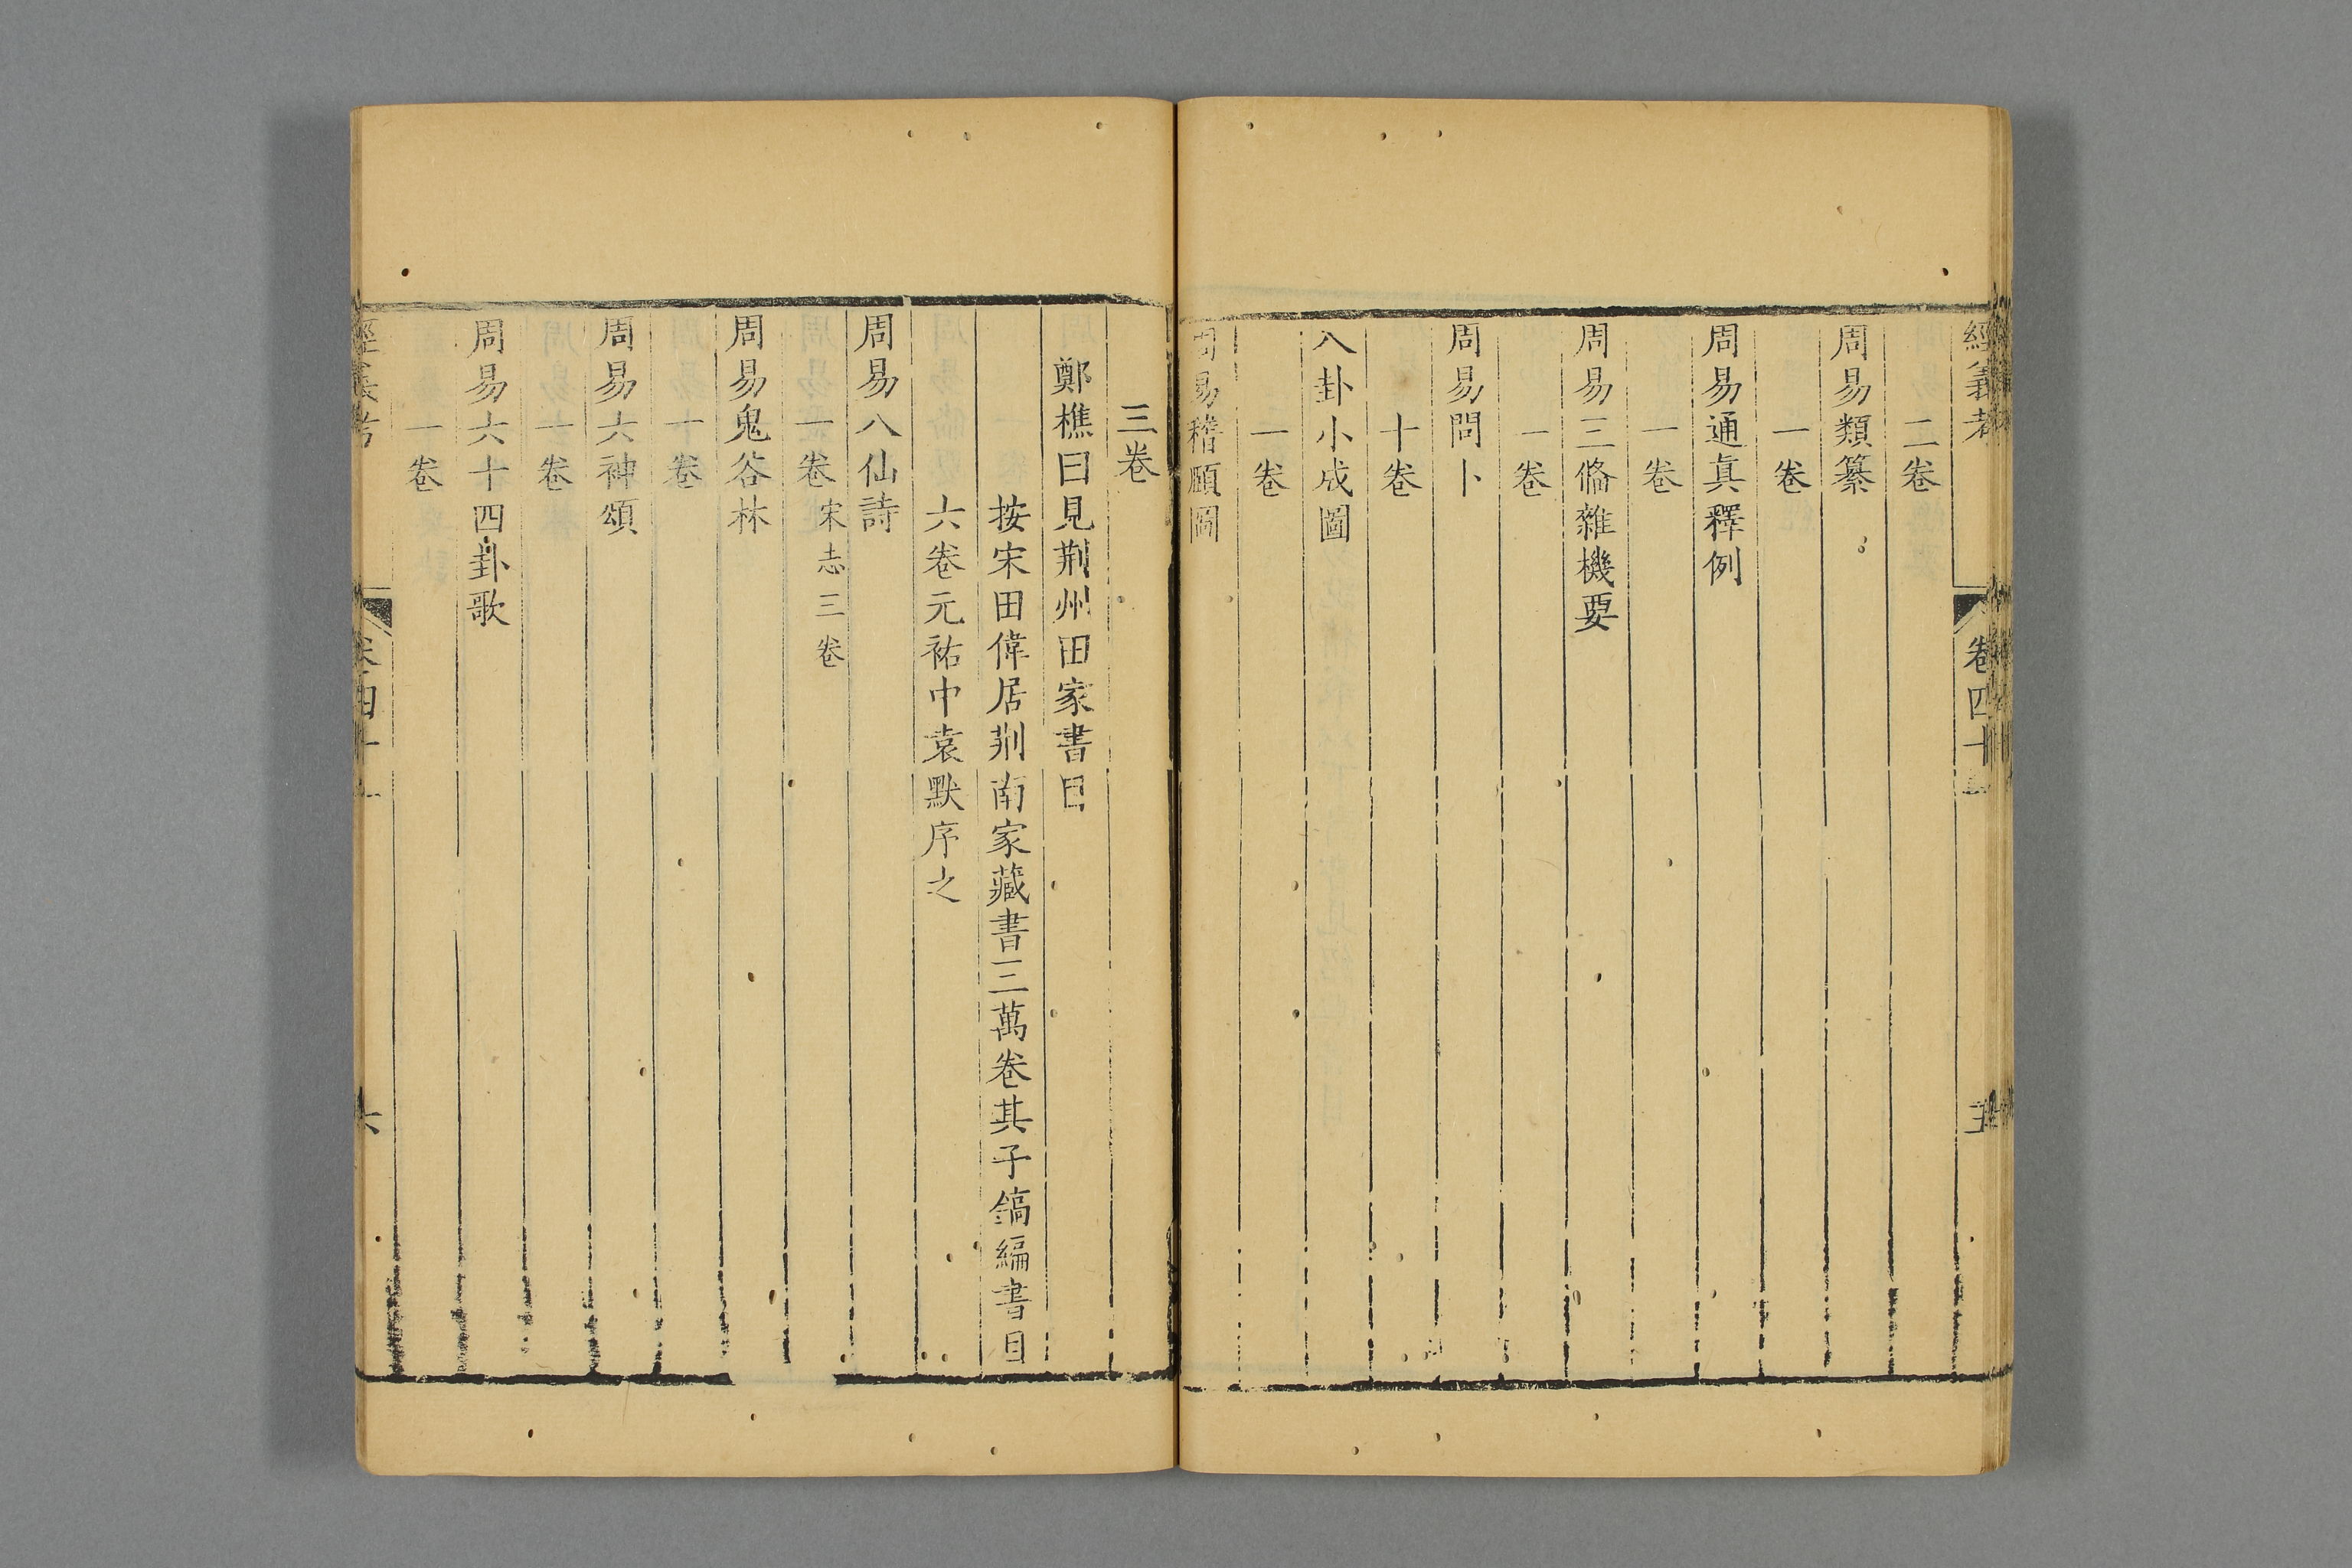 經義考
卷四十
二卷
周易類纂
一卷
周易通真釋例
一卷
周易三備雜機要
一卷
周易問卜
十卷
八卦小成圖
一卷
周易稽頤圖
三卷
鄭樵曰見荆州田家書目
按宋田偉居荆南家藏書三萬卷其子鎬編書目
六卷元祐中袁默序之
周易八仙詩
一卷宋志三卷
周易鬼谷林
一卷
周易六神頌
一卷
周易六十四卦歌
一卷
六